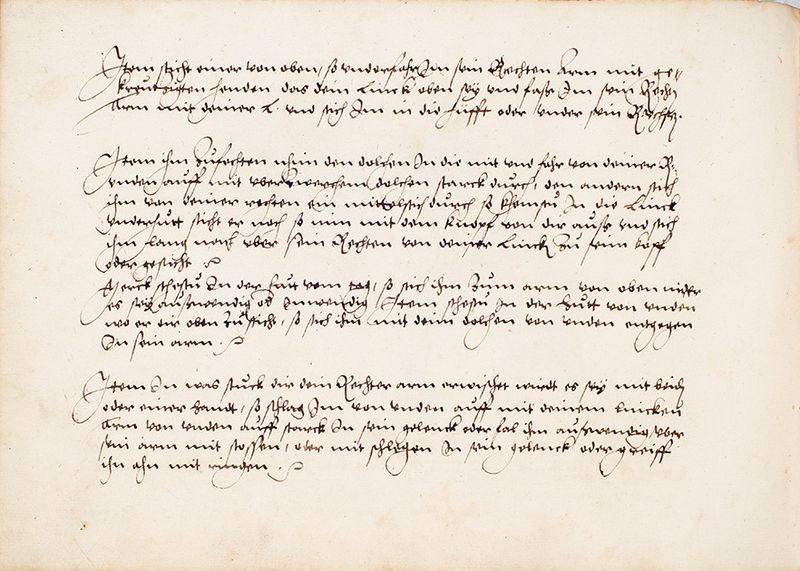 Item sticht einer von oben, so underfahr Im sein Rechten Arm mit ge-
kreutzigten henden das dein Linck oben sey und fass Im sein Recht
Arm mit deiner L. und stich Im in die hufft oder under sein Rechtz.
Item Ihm Zufechten nim den dolchen In die mit und fahr von deiner R.
unden auff mit uberzwerchem dolchen starck durch, den andern stich
ihm von deiner rechten ein mittelstich durch so khomstu In die Linck
underhutt sticht er noch so nim mit dem knopf von dir auss und stich
ihm lang nach uber sein Rechten von deiner Linck zu seim kopff
oder gesicht.
Merck stehstu In der hut vom tag, so stich ihm Zum arm von oben nider
es sey ausswendig od Inwendig, Item stehstu In der hutt von unden
wo er dir oben Zusticht, so stich ihm mit deim dolchen von unden entgegen
In sein arm.
Item In was stuck dir dein Rechter arm erwischet wurdt es sey mit beid
oder einer handt, so schlag Im von unden auff mit deinem lincken
Arm von unden auff starck In sein gelenck oder fal ihm ausswendig uber
sein arm mit stossen, oder mit schlegen In sein gelenck oder greiff
ihn ahn mit ringen.